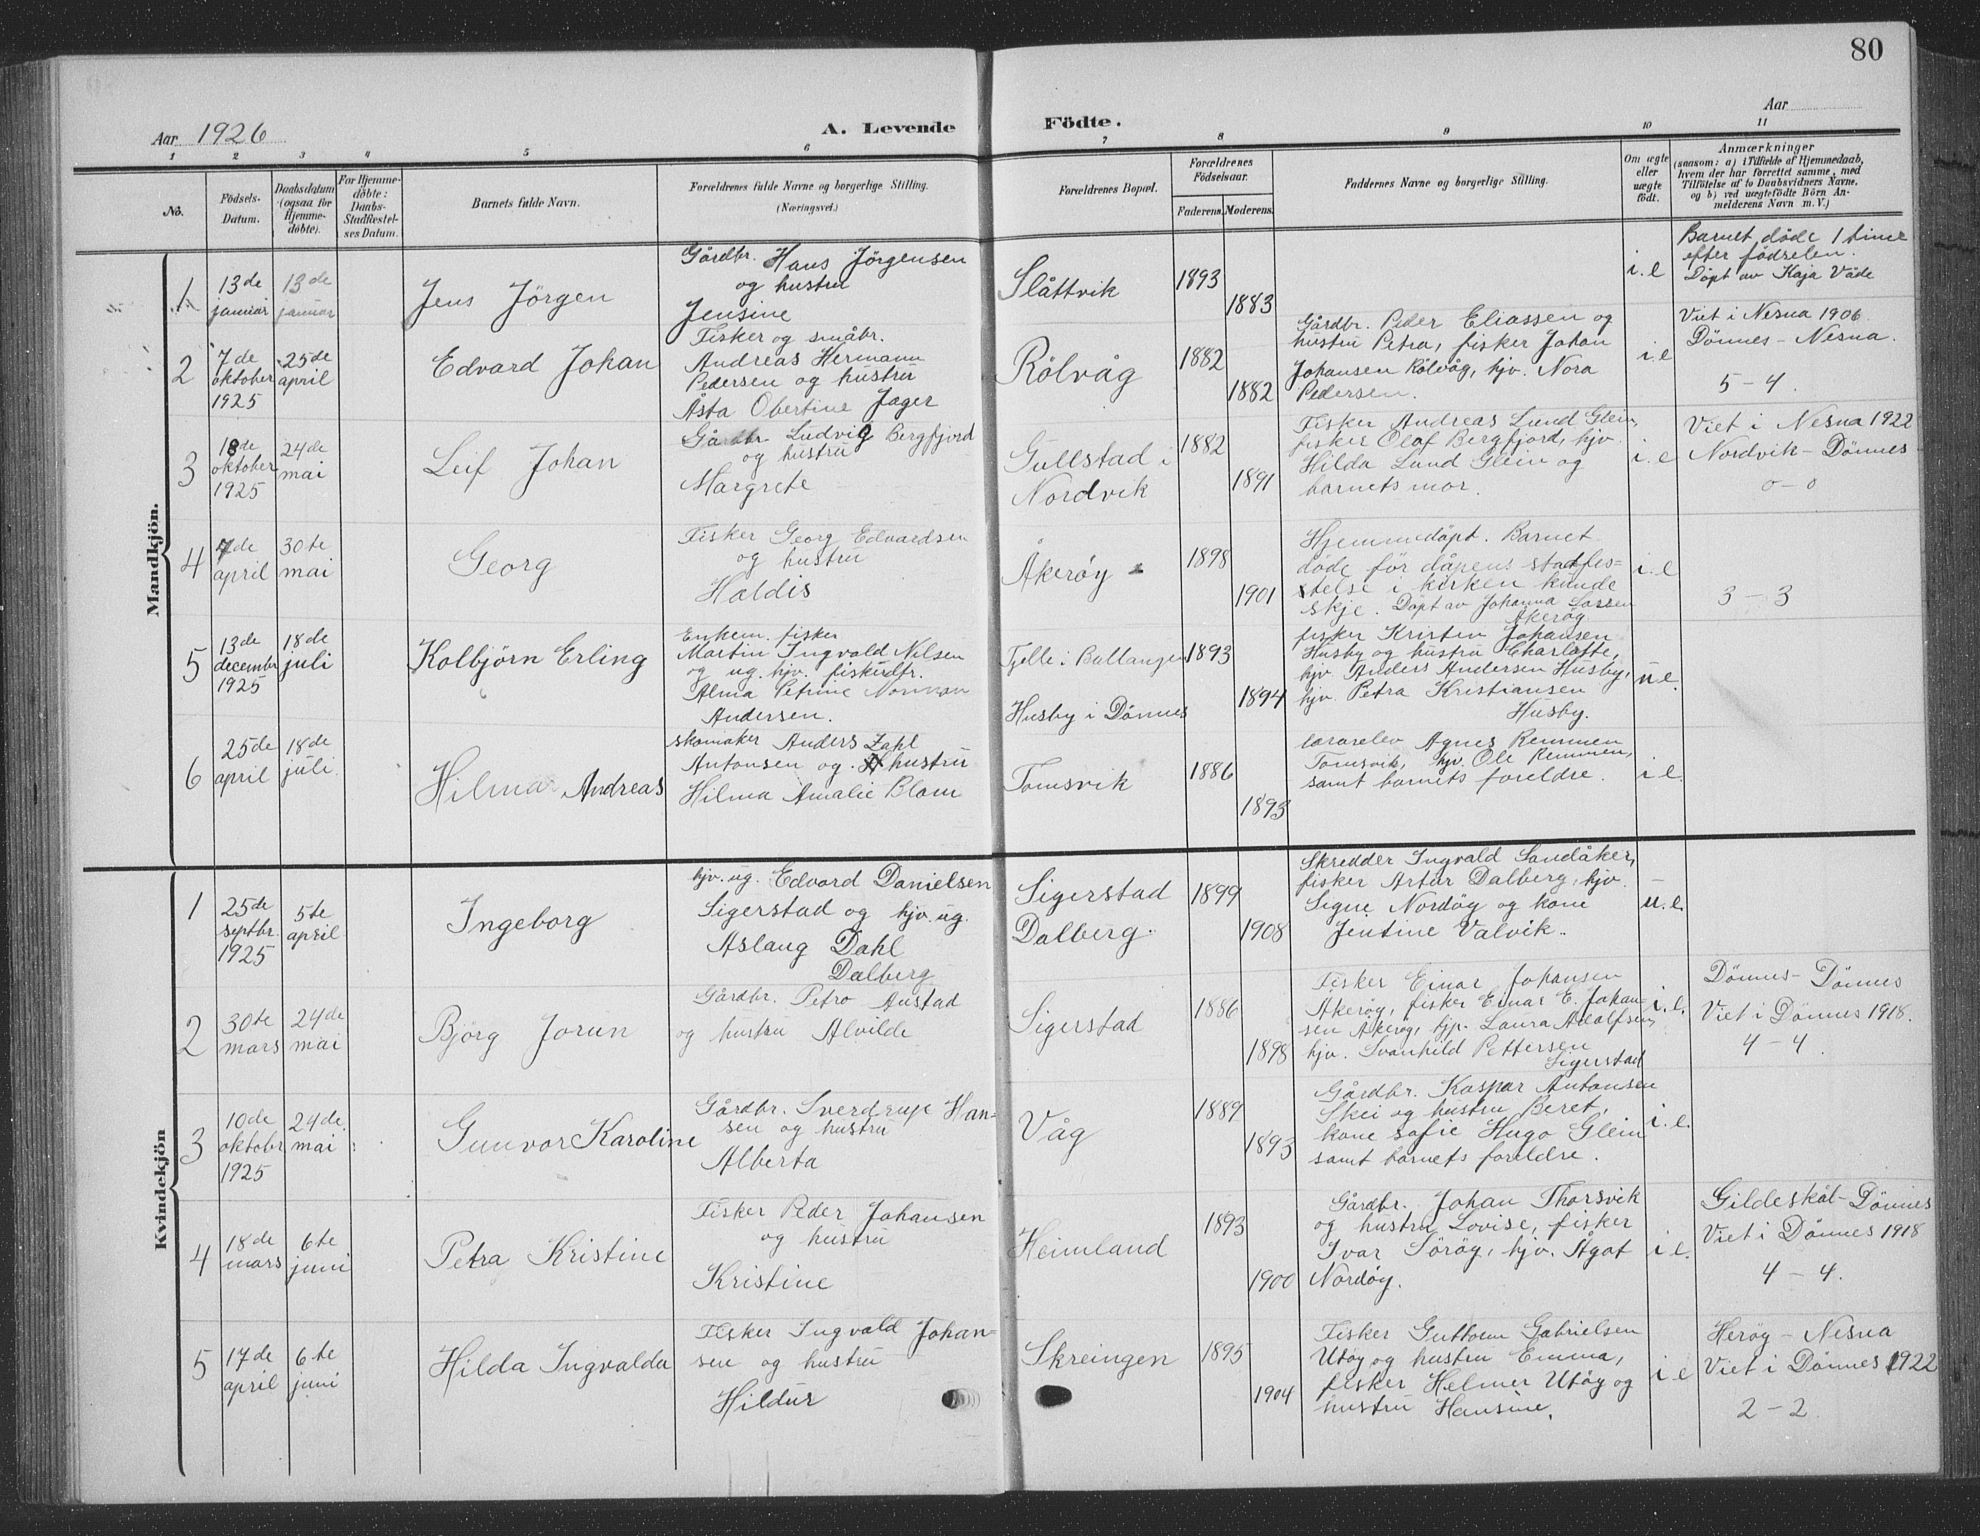 80
Aar 1926
A. Levende
Födte.
Aar
1 2 3 4 5 6 7 8 9 10 11
No.
Födsels-
Datum.
Daabsdatum
(ogsaa for
Hjemme-
döbte).
For Hjemme-
döbte:
Daabs-
Stadfæstel-
ses Datum.
Barnets fulde Navn.
Forældrenes fulde Navne og borgerlige Stilling.
(Næringsvei.)
Forældrenes Bopæl.
Forældrenes
Födselsaar.
Faderens.
Moderens.
Faddernes Navne og borgerlige Stilling.
Om ægte
eller
uægte
födt.
Anmærkninger
(saasom: a) i Tilfælde af Hjemmedaab,
hvem der har forrettet samme, med
Tilföielse af to Daabsvidners Navne,
og b) ved uægtefödte Börn An-
melderens Navn m. V.)
Mandkjön.
1
13de
januar
13de
januar
Jens Jörgen
Gårdbr. Hans Jörgensen
og hustru
Jensine
Slåttvik
1893
1883
i.e
Barnet döde 1 time
efter födselen.
Döpt av Kaja Våde
2
7de
oktober
1925
25de
april
Edvard Johan
Fisker og småbr.
Andreas Hermann
Pedersen og hustru
Åsta Obertine Jager
Rölvåg
1882
1882
Gårdbr. Peder Eliassen og
hustru Petra, fisker Johan
Johansen Rölvåg, hjv. Nora
Pedersen.
i.e
Viet i Nesna 1906.
Dönnes - Nesna.
5 - 4.
3
18de
oktober
1925
24de
mai
Leif Johan
Gårdbr. Ludvig Bergfjord
og hustru
Margrete
Gullstad i
Nordvik
1882
1891
Fisker Andreas Lund Glein,
fisker Olaf Bergfjord, hjv.
Hilda Lund Glein og
barnets mor.
i.e
Viet i Nesna 1922
Nordvik - Dönnes
0 - 0
4
7de
april
30te
mai
Georg
Fisker Georg Edvardsen
og hustru
Haldis
Åkeröy
1898
1901
Hjemmedöpt. Barnet
döde för dåpens stadfes-
telse i kirken kunde
skje. Döpt av Johanna Larsen
Åkeröy
i.e
3 - 3
5
13de
decembr
1925
18de
juli
Kolbjörn Erling
Enkem. fisker
Martin Ingvald Nilsen
og ug. hjv. fiskerdtr.
Alma Petrine Norman
Andersen.
Tjelle i Ballangen
Husby i Dönnes
1893
1894
fisker Kristen Johansen
Husby og hustru Charlotte,
hjv. Anders Andersen Husby,
hjv. Petra Kristiansen
Husby.
u.e.
6
25de
april
18de
juli
Hilmar Andreas
Skomaker Anders Zahl
Antonsen og hustru
Hilma Amalie Blom
Tomsvik
1886
1893
lærerelev Agnes Remmen
Tomsvik, hjv. Ole Remmen,
samt barnets foreldre.
i.e.
Kvindekjön
1
25de
septbr.
1925
5te
april
Ingeborg
hjv. ug. Edvard Danielsen
Sigerstad og hjv. ug.
Aslaug Dahl
Dalberg
Sigerstad
Dalberg.
1899
1908
Skredder Ingvald Sandåker,
fisker Artur Dalberg, hjv.
Signe Nordöy og kone
Jentine Valvik.
u.e.
2
30te
mars
24de
mai
Björg Jorun
Gårdbr. Petro Austad
og hustru Alvilde
Sigerstad
1886
1898
Fisker Einar Johansen
Åkeröy, fisker Einar E. Johan-
sen Åkeröy, hjv. Laura Adolfsen,
hjv. Svanhild Pettersen
Sigerstad
i.e.
Dönnes - Dönnes
Viet i Dönnes 1918.
4 - 4.
3
10de
oktobr
1925
24de.
mai
Gunvor Karoline
Gårdbr. Sverdrup Han-
sen og hustru
Alberta
Våg
1889
1893
Gårdbr. Kaspar Antonsen
Skei og hustru Beret,
kone Sofie Hugo Glein
samt barnets foreldre.
i.e.
4
18de
mars
6te
juni
Petra Kristine
Fisker Peder Johansen
og hustru
Kristine
Heimland
1893
1900
Gårdbr. Johan Thorsvik
og hustru Lovise, fisker
Ivar Söröy, hjv. Ågot
Nordöy.
i.e.
Gildeskål - Dönnes
Viet i Dönnes 1918
4 - 4.
5
17de
april
6te
juni
Hilda Ingvalda
Fisker Ingvald Johan-
sen og hustru
Hildur
Skreingen
1895
1904
Fisker Guttorm Gabrielsen
Utöy og hustru Emma,
fisker Helmer Utöy og
hustru Hansine.
i.e
Heröy - Nesna
Viet i Dönnes 1922
2 - 2